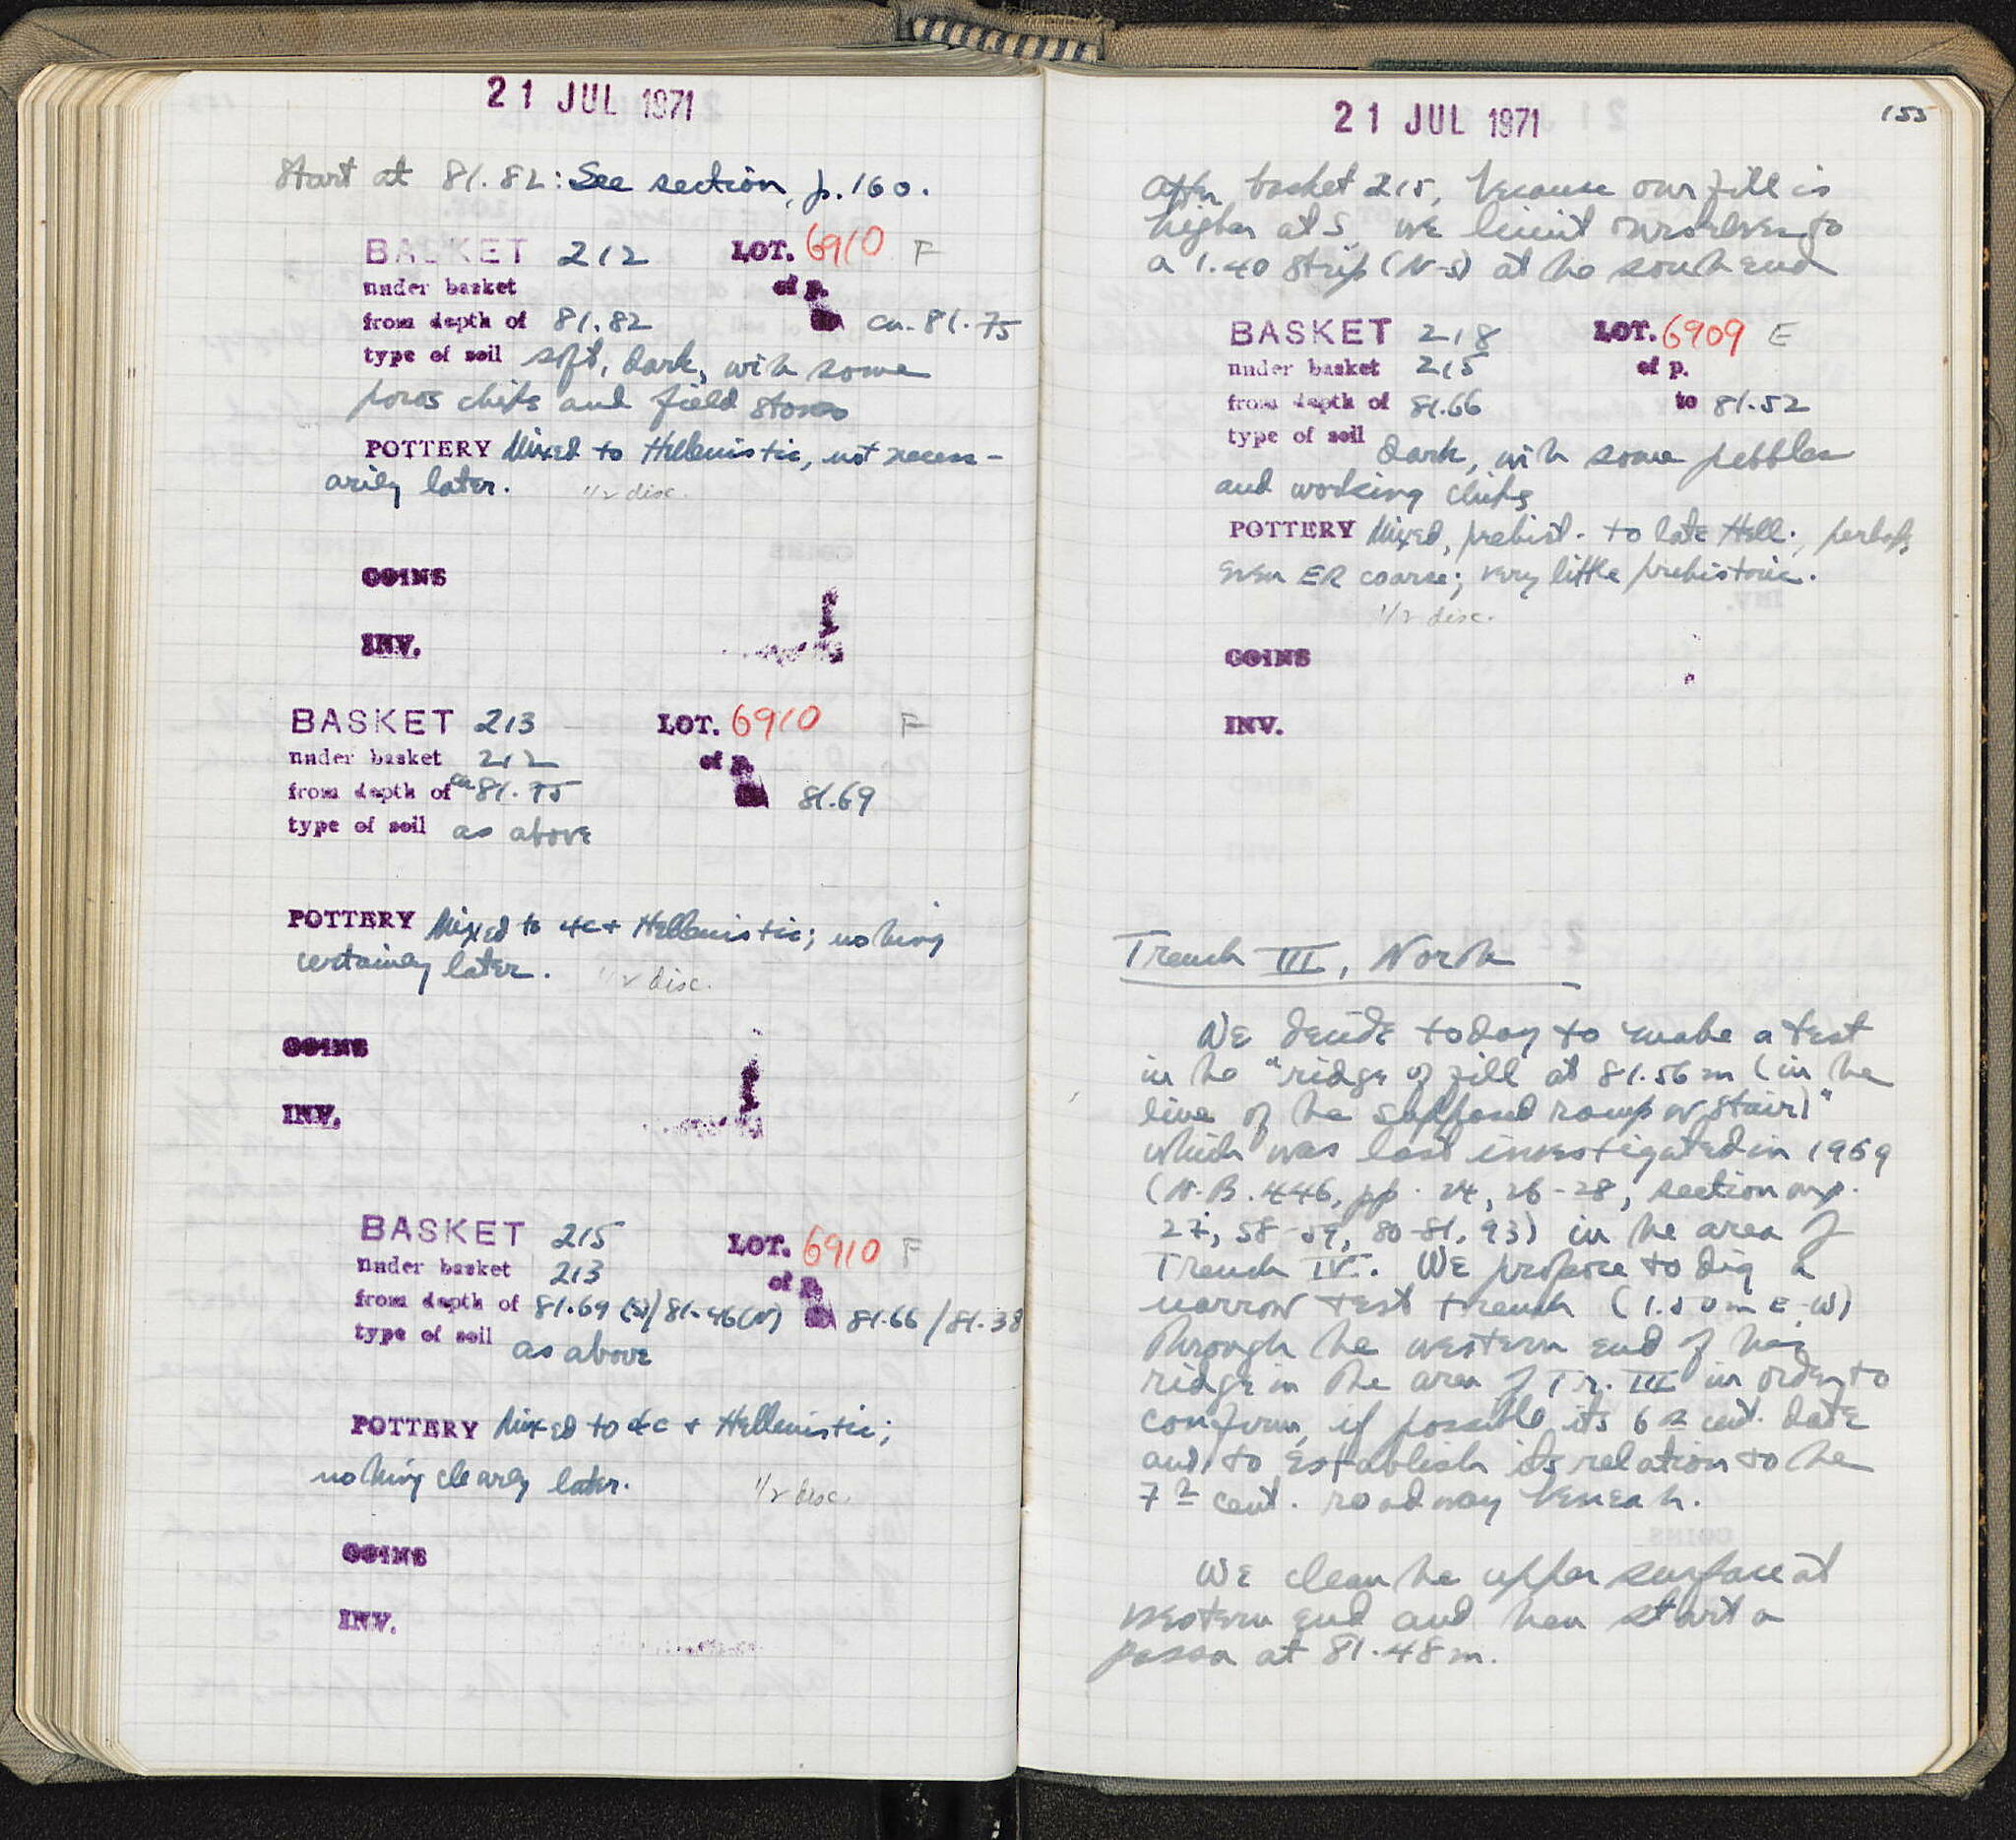 21 JUL 1971
Start at 81.82: See section, p. 160.
BASKET 212 LOT. 6910 F
under basket of p.
from depth of 81.82 ca. 81.75
type of soil soft, dark, with some
poros chips and field stones
POTTERY Mixed to Hellenistic, not necess-
arily later. 1/2 disc.
COINS
INV.
BASKET 213 LOT. 6910 F
under basket 212 of p.
from depth of ca 81.75 81.69
type of soil as above
POTTERY Mixed to 4c + Hellenistic; nothing
certainly later. 1/2 disc.
COINS
INV.
BASKET 215 LOT. 6910 F
under basket 213 of p.
from depth of 81.69 (S)/81.46(N) 81.66/81.38
type of soil as above
POTTERY Mixed to 4c + Hellenistic;
nothing clearly later. 1/2 disc.
COINS
INV.
21 JUL 1971 155
After basket 215, because our fill is
higher at S we limit ourselves to
a 1.40 strip (N-S) at the south end
BASKET 218 LOT. 6909 E
under basket 215 of p.
from depth of 81.66 to 81.52
type of soil Dark, with some pebbles
and working chips
POTTERY Mixed, prehist. to late Hell., perhaps
even ER coarse; very little prehistoric.
1/2 disc.
COINS
INV.
Trench III, North
We decide today to make a test
in the "ridge of fill at 81.56 m (in the
line of the supposed ramp or stair)"
which was last investigated in 1969
(N.B. 446, pp. 24, 26-28, section on p.
27, 58-59, 80-81, 93) in the area of
Trench IV. We propose to dig a
narrow test trench (1.50m E-W)
through the western end of this
ridge in the area of Tr. III in order to
confirm, if possible, its 6th cent. date
and to establish its relation to the
7th cent. roadway beneath.
We clean the upper surface at
western end and then start a
passa at 81.48 m.